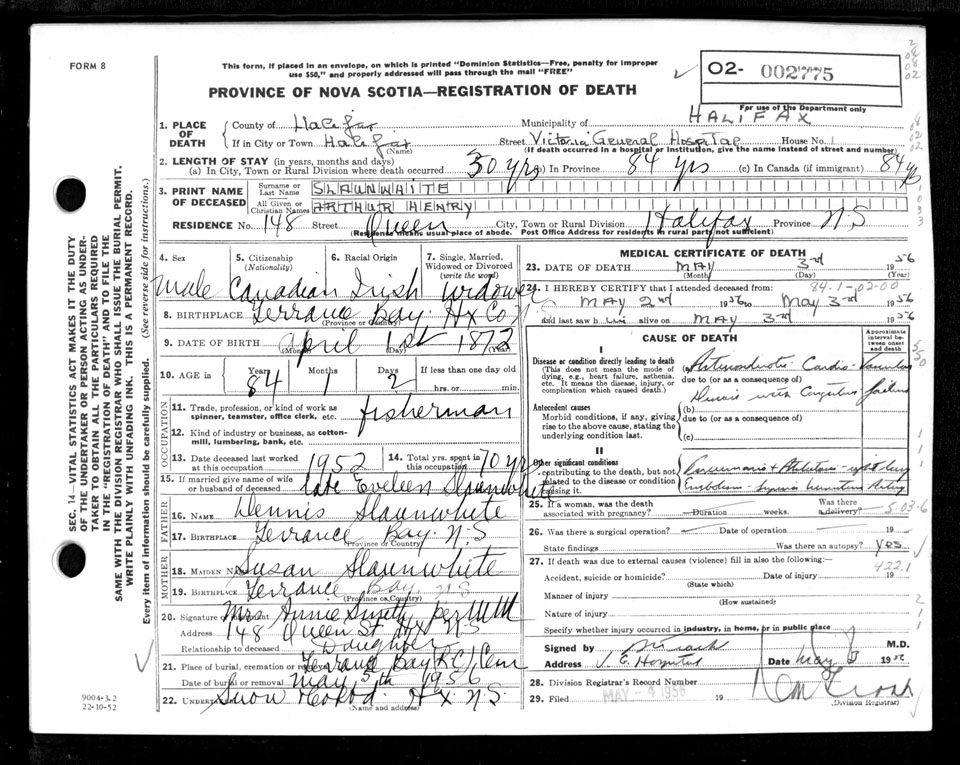 FORM 8
This form, if placed in an envelope, on which is printed "Dominion Statistics—Free, penalty for improper
use $50," and properly addressed will pass through the mail "FREE"
02- 002775
PROVINCE OF NOVA SCOTIA—REGISTRATION OF DEATH
For use of the Department only
1. PLACE OF DEATH
County of Halifax Municipality of HALIFAX
If in City or Town Halifax Street Victoria General Hospital House No.
(Name) (If death occurred in a hospital or institution, give the name instead of street and number)
2. LENGTH OF STAY (in years, months and days)
(a) In City, Town or Rural Division where death occurred 30 yrs (b) In Province 84 yrs (c) In Canada (if immigrant) 84 yrs
3. PRINT NAME OF DECEASED
Surname or Last Name SLAUNWAITE
All Given or Christian Names ARTHUR HENRY
RESIDENCE No. 148 Street Queen City, Town or Rural Division Halifax Province N.S
(Residence means usual place of abode. Post Office Address for residents in rural parts not sufficient)
4. Sex 5. Citizenship (Nationality) 6. Racial Origin 7. Single, Married, Widowed or Divorced (write the word)
Male Canadian Irish Widower
8. BIRTHPLACE Terrance Bay Hx Co N.S
(Province or Country)
9. DATE OF BIRTH April 1st 1872
(Month) (Day) (Year)
10. AGE in Years 84 Months 1 Days 2 If less than one day hrs. or min.
OCCUPATION
11. Trade, profession, or kind of work as spinner, teamster, office clerk, etc. fisherman
12. Kind of industry or business, as cotton-mill, lumbering, bank, etc.
13. Date deceased last worked at this occupation 1952 14. Total yrs. spent in this occupation 70 yrs
15. If married give name of wife or husband of deceased late Eveleen Slaunwhite
FATHER
16. NAME Dennis Slaunwhite
17. BIRTHPLACE Terrance Bay N.S
(Province or Country)
MOTHER
18. MAIDEN NAME Susan Slaunwhite
19. BIRTHPLACE Terrance Bay N.S
(Province or Country)
20. Signature of informant Mrs. Annie per
Address 148 Queen St Hx N.S
Relationship to deceased Daughter
21. Place of burial, cremation or removal Terrance Bay R.C. Cem
Date of burial or removal May 5th 1956
22. UNDERTAKER Snow Hx N.S.
(Name and address)
MEDICAL CERTIFICATE OF DEATH
23. DATE OF DEATH MAY 3rd 1956
(Month) (Day) (Year)
24. I HEREBY CERTIFY that I attended deceased from: 84-1-02-00
MAY 2nd 1956 to May 3rd 1956
and last saw him alive on MAY 3rd 1956
CAUSE OF DEATH
Approximate interval between onset and death
I
Disease or condition directly leading to death
(This does not mean the mode of dying, e.g., heart failure, asthenia, etc. It means the disease, injury, or complication which caused death.)
Cardio-Vascular
due to (or as a consequence of)
with failure
Antecedent causes
Morbid conditions, if any, giving rise to the above cause, stating the underlying condition last.
(b)
due to (or as a consequence of)
(c)
II
Other significant conditions contributing to the death, but not related to the disease or condition causing it.
25. If a woman, was the death associated with pregnancy? Duration weeks. Was there a delivery? 5-03-6
26. Was there a surgical operation? Date of operation 19
State findings Was there an autopsy? Yes
27. If death was due to external causes (violence) fill in also the following: 422.1
Accident, suicide or homicide? Date of injury 19
(State which)
Manner of injury
(How sustained)
Nature of injury
Specify whether injury occurred in industry, in home, or in public place
Signed by M.D.
Address V. G. Hospital Date May 3 19
28. Division Registrar's Record Number
29. Filed MAY -4 1956 19
(Division Registrar)
SEC. 14—VITAL STATISTICS ACT MAKES IT THE DUTY
OF THE UNDERTAKER OR PERSON ACTING AS UNDER-
TAKER TO OBTAIN ALL THE PARTICULARS REQUIRED
IN THE "REGISTRATION OF DEATH" AND TO FILE THE
SAME WITH THE DIVISION REGISTRAR WHO SHALL ISSUE THE BURIAL PERMIT.
WRITE PLAINLY WITH UNFADING INK. THIS IS A PERMANENT RECORD.
Every item of information should be carefully supplied. (See reverse side for instructions.)
9004-3.2
22-10-52